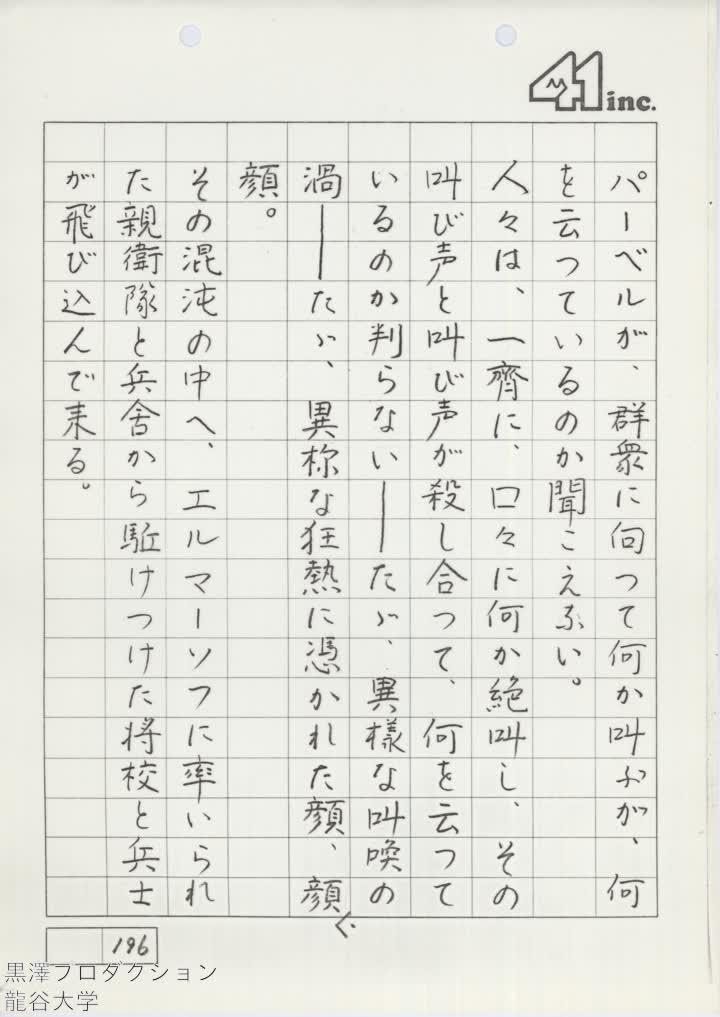 41 inc.
パーベルが、群衆に向つて何か叫ぶが、何
を云つているのか聞こえない。
人々は、一齊に、口々に何か絶叫し、その
叫び声と叫び声が殺し合つて、何を云つて
いるのか判らない――たゞ、異様な叫喚の
渦――たゞ、異様な狂熱に憑かれた顔、顔
顔。
その混沌の中へ、エルマーソフに率いられ
た親衛隊と兵舎から駈けつけた将校と兵士
が飛び込んで来る。
196
黒澤プロダクション
龍谷大学